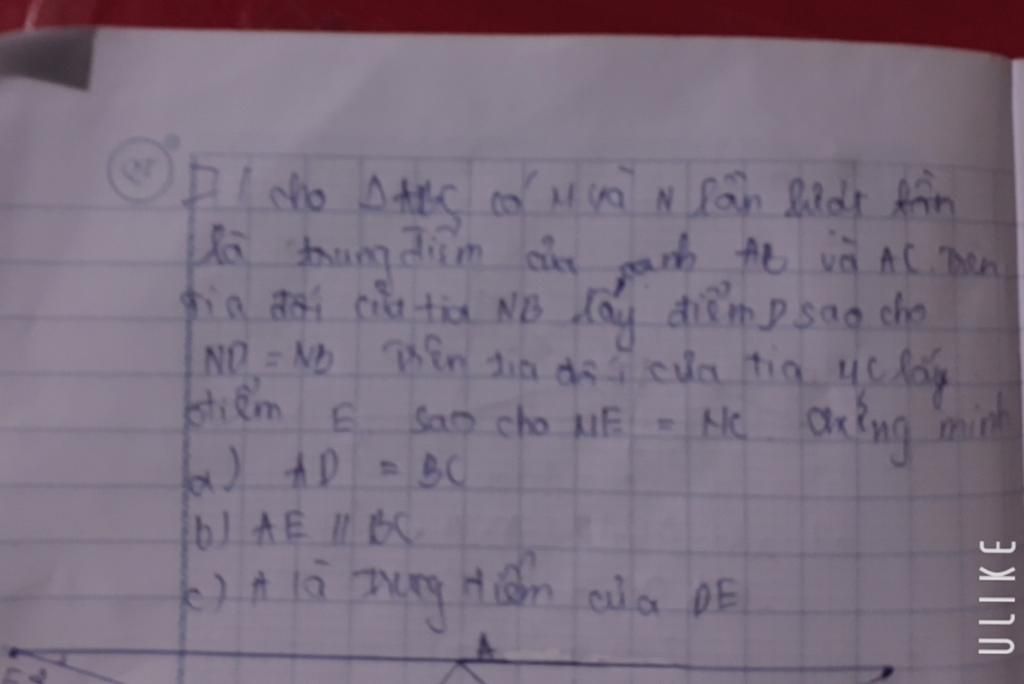 cho ΔABC có M và N lần lượt
là trung điểm của cạnh AB và AC. Trên
tia đối của tia NB lấy điểm D sao cho
ND = NB Trên tia đối của tia MC lấy
điểm E sao cho ME = MC Chứng minh
a) AD = BC
b) AE // BC
c) A là trung điểm của DE
A
ULIKE